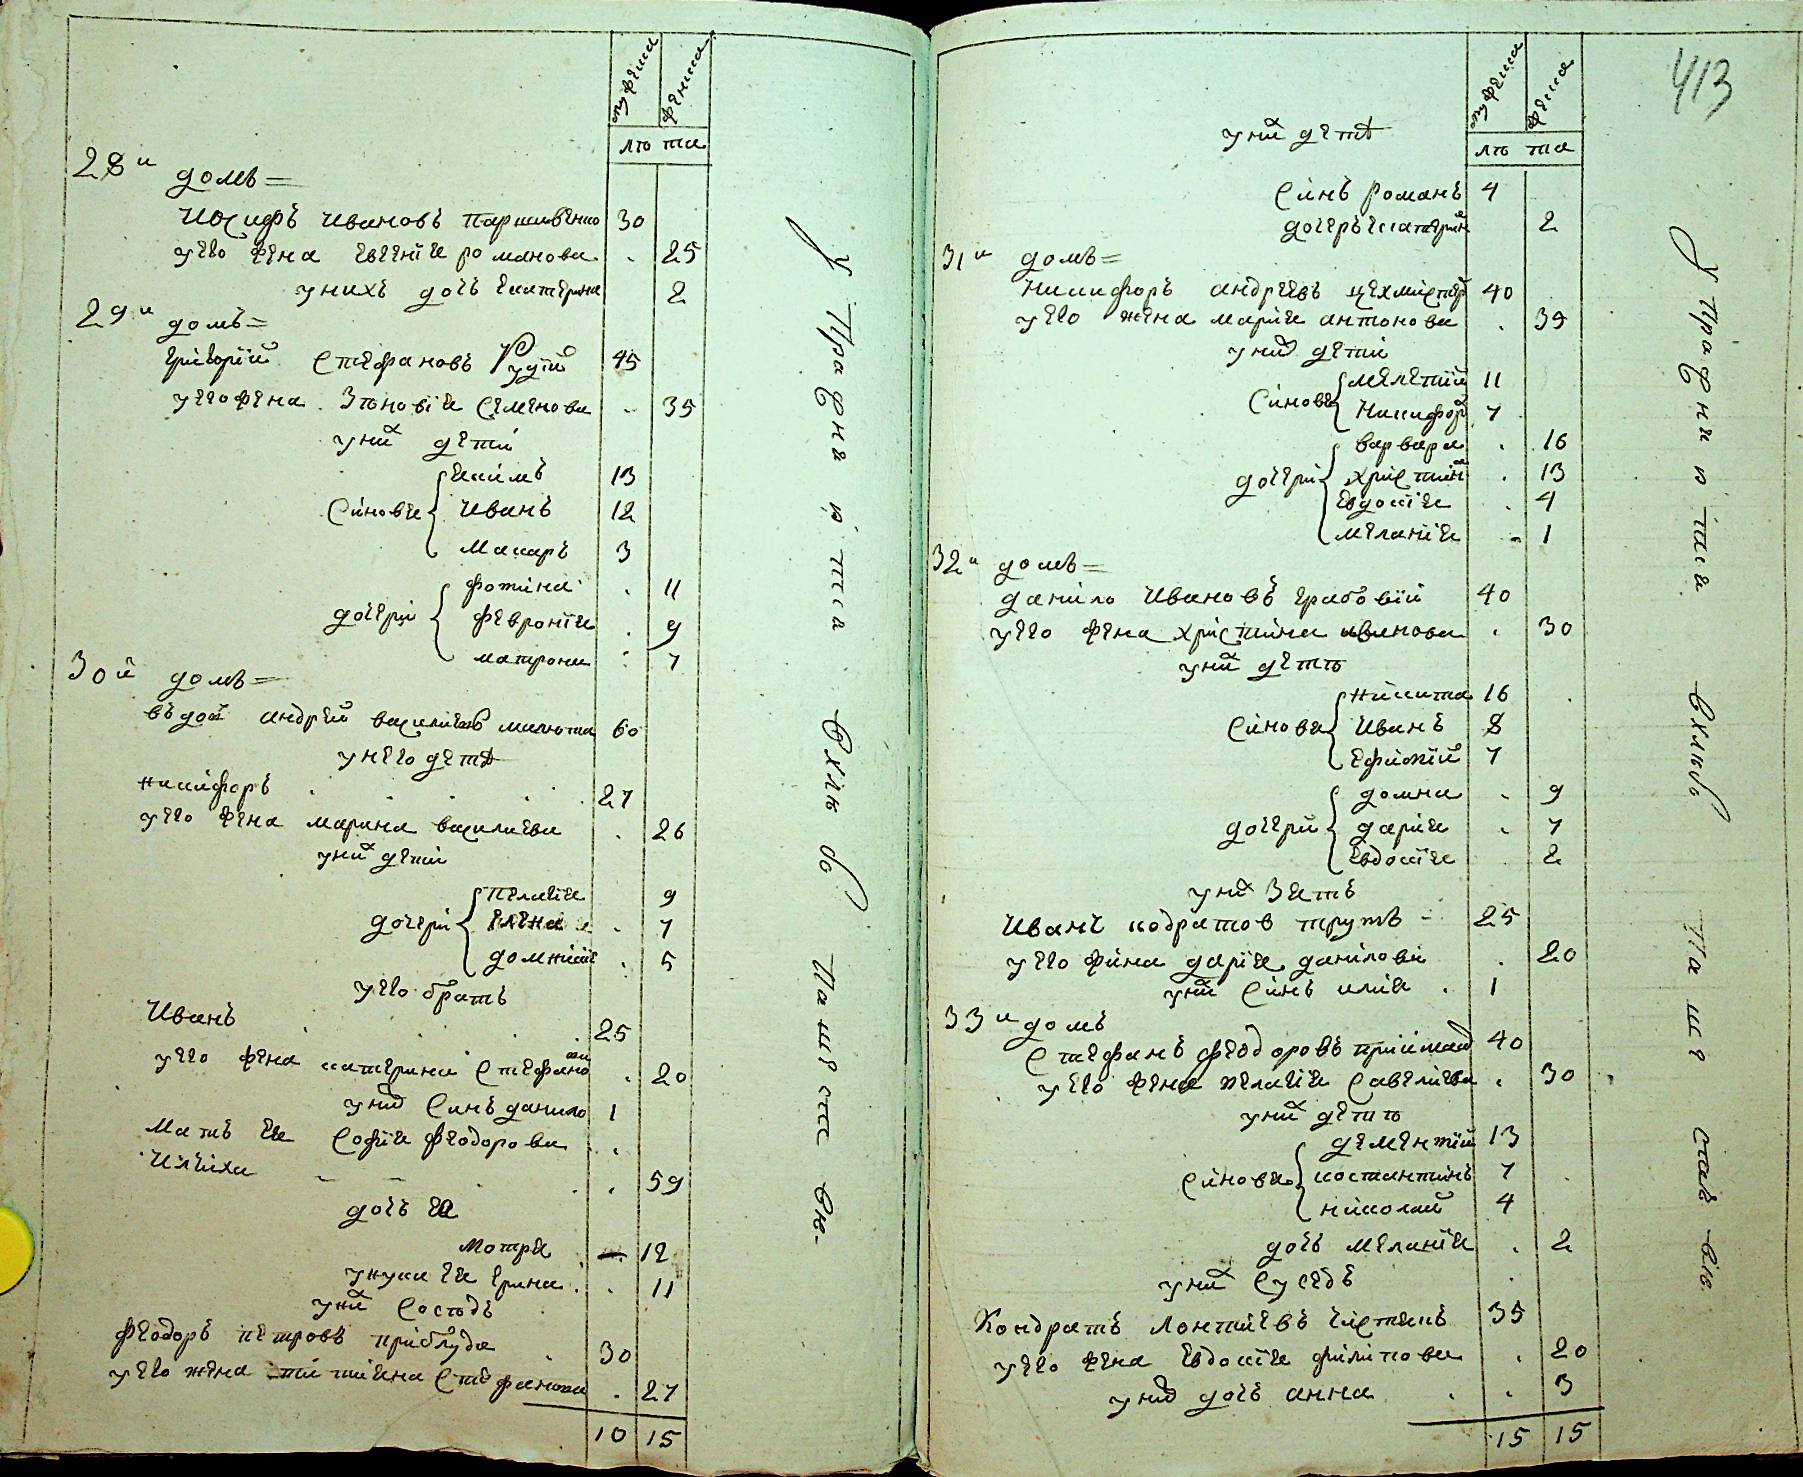 мужеска
женска
лѣ та
28й домъ=
Иосифъ Ивановъ 30
у его жена Евгения романова . 25
у нихъ дочь Екатерина 2
29й домъ=
Григорий Стефановъ Рудий 45
у его жена Зѣновия Семенова . 35
у них дети
Синовя
Иаким 13
Иванъ 12
Макаръ 3
дочери
Фотина . 11
Феврония . 9
Матрона . 7
30й домъ=
вдов андрей василиев малюта 60
у него дети
никифоръ 27
у его жена марина василиева . 26
у них дети
дочери
Пелагия 9
Елена . 7
домникия . 5
у его братъ
Иванъ 25
у его жена катерина Стефанова . 20
у них Синъ данило 1
Мать Ея София Феодорова . .
. 59
дочь Ея
Мотря 12
унука Ея Ірина . 11
у них Сосѣдъ
Феодоръ петровъ приблуда . 30
у его жена татияна Стефанова . 27
10 15
413
мужеска
женска
лѣ та
у них дети
Синъ романъ 4
дочеръ Екатерина 2
31й домъ=
Никифоръ андреевъ цехмистер 40
у его жена мария антонова . 35
у них дети
Синовя
мелетий 11
Никифор 7
дочери
варвара . 16
Христина . 13
Евдокия . 4
мелания . 1
32й домъ=
данило Ивановъ грабовий 40
у его жена христина иванова . 30
у них дети
Синовя
Никита 16
Иванъ 8
Ефимий 7
дочери
домна . 9
дария . 7
Евдокия 2
у них Зять
Иванъ кодратов трутъ 25
у его жина дария данилова . 20
у них Синъ илия . 1
33й домъ
Стефанъ Феодоровъ приймак 40
у его жена пелагия Савелиева . 30
у них дети
Синовя
дементий 13
костантинъ 7
николай 4
дочь мелания . 2
у них Суседъ
Кондратъ Лонтиевъ 35
у его жена Евдокия филипова . 20
у них дочь анна . . 3
15 15